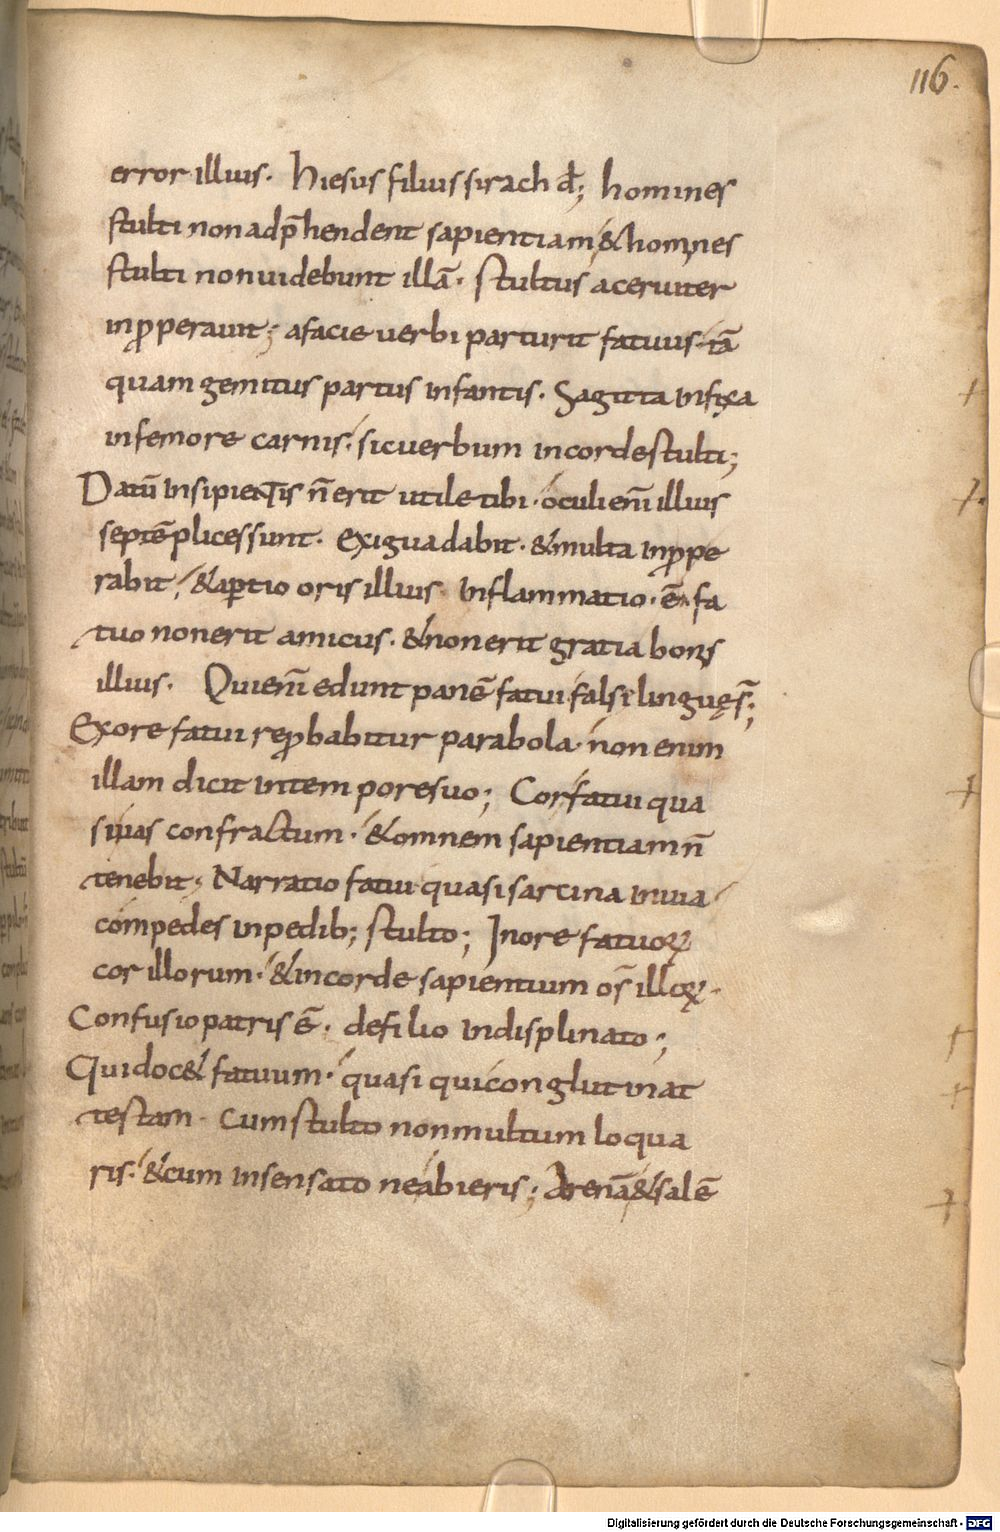 116.
error illius. Hiesus filius sirach đ; homines
stulti non adp̄hendent sapientiam & homines
stulti non uidebunt illā. Stultus aceruiter
inꝓperauit; afacie uerbi parturit fatuus. tā
quam gemitus partus infantis. Sagitta infixa
infemore carnis. sicuerbum incorde stulti;
Datū insipientis n̄ erit utile tibi. oculi enī illius
septēplices sunt. exigua dabit. & multa inꝓpe
rabit, & aꝑtio oris illius inflammatio. ē fa
tuo non erit amicus. & non erit gratia bonis
illius. Qui enī edunt panē fatui falsi linguę s̄;
Exore fatui reꝓbabitur parabola. non enim
illam dicit intempore suo; Cor fatui qua
si uas confractum. & omnem sapientiam n̄
tenebit; Narratio fatui quasi sarcina inuia
compedes inpedib; stulto; Inore fatuoꝝ
cor illorum. & incorde sapientium os̄ illoꝝ.
Confusio patris ē. defilio indisplinato;
Qui doc& fatuum. quasi qui conglutinat
testam. Cum stulto non multum loqua
ris. & cum insensato ne abieris; Arenā & salē
Digitalisierung gefördert durch die Deutsche Forschungsgemeinschaft - DFG